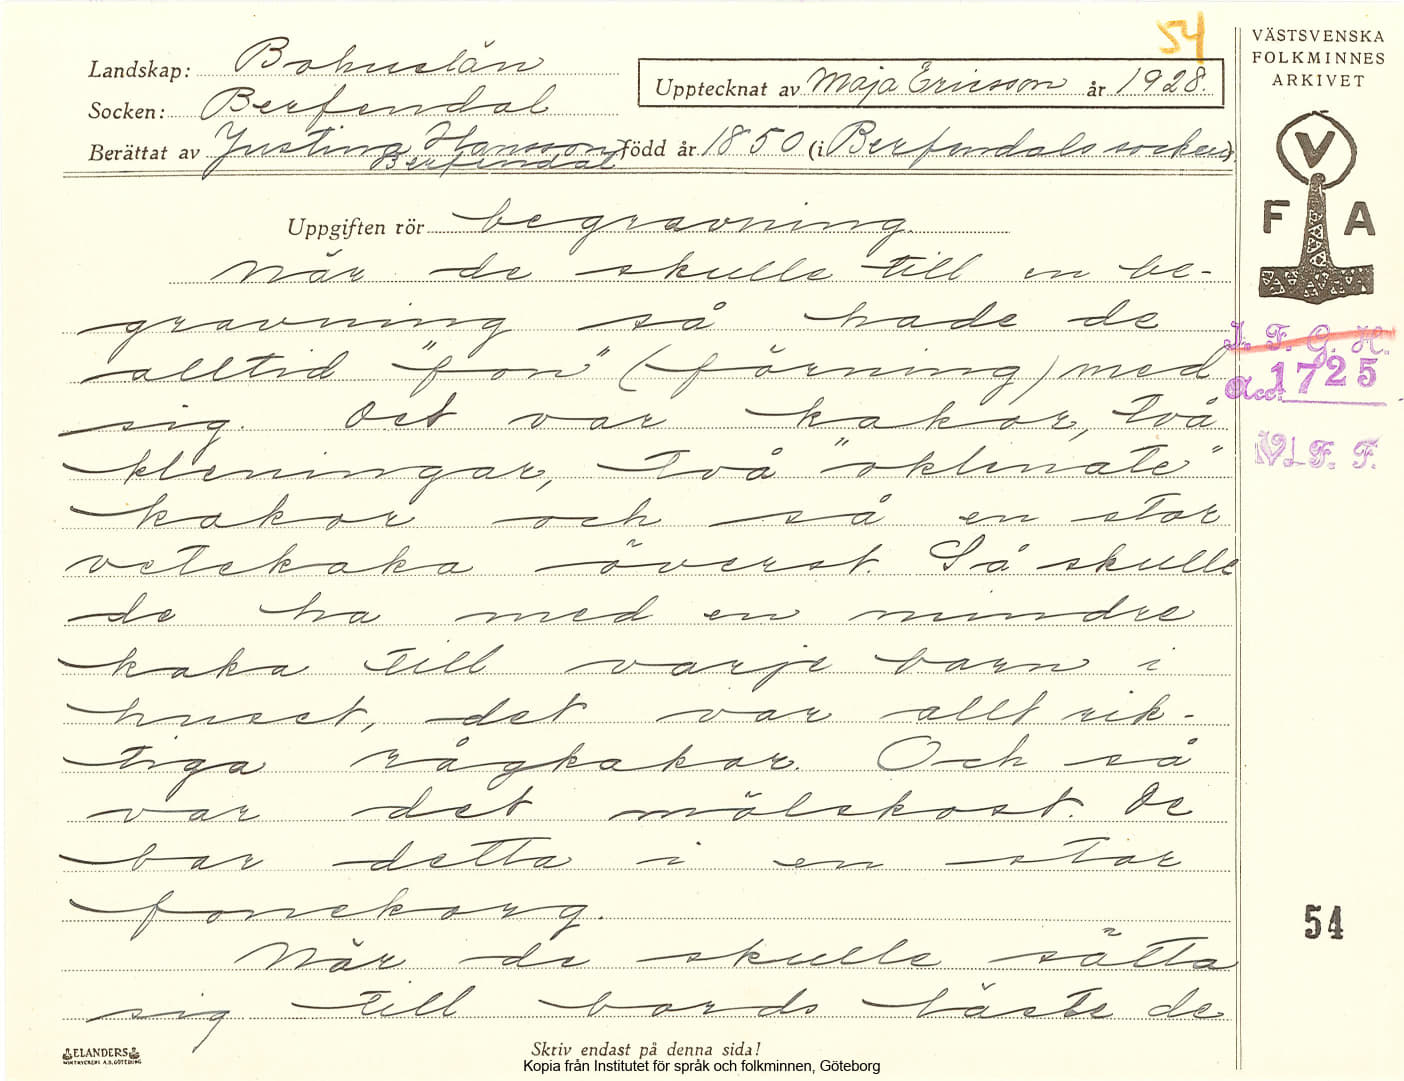 54
VÄSTSVENSKA
FOLKMINNES
ARKIVET
Landskap: Bohuslän
Upptecknat av Maja Ericsson år 1928.
Socken: Berfendal
Berättat av Justina Hansson född år 1850 (i Berfendals socken).
Berfendal
V
F A
Uppgiften rör begravning.
När de skulle till en be-
gravning så hade de
alltid "fon" (förning) med
sig. Det var kakor, två
kleningar, två "oklenate"
kakor och så en stor
vetekaka överst. Så skulle
de ha med en mindre
kaka till varje barn i
huset, det var allt rik-
tiga rågkakor. Och så
var det mölskost. De
bar detta i en stor
fonekorg.
När de skulle sätta
sig till bords läste de
I. F. G. H.
Acc. 1725
V. F. F.
54
ELANDERS
GÖTEBORG
Skriv endast på denna sida!
Kopia från Institutet för språk och folkminnen, Göteborg